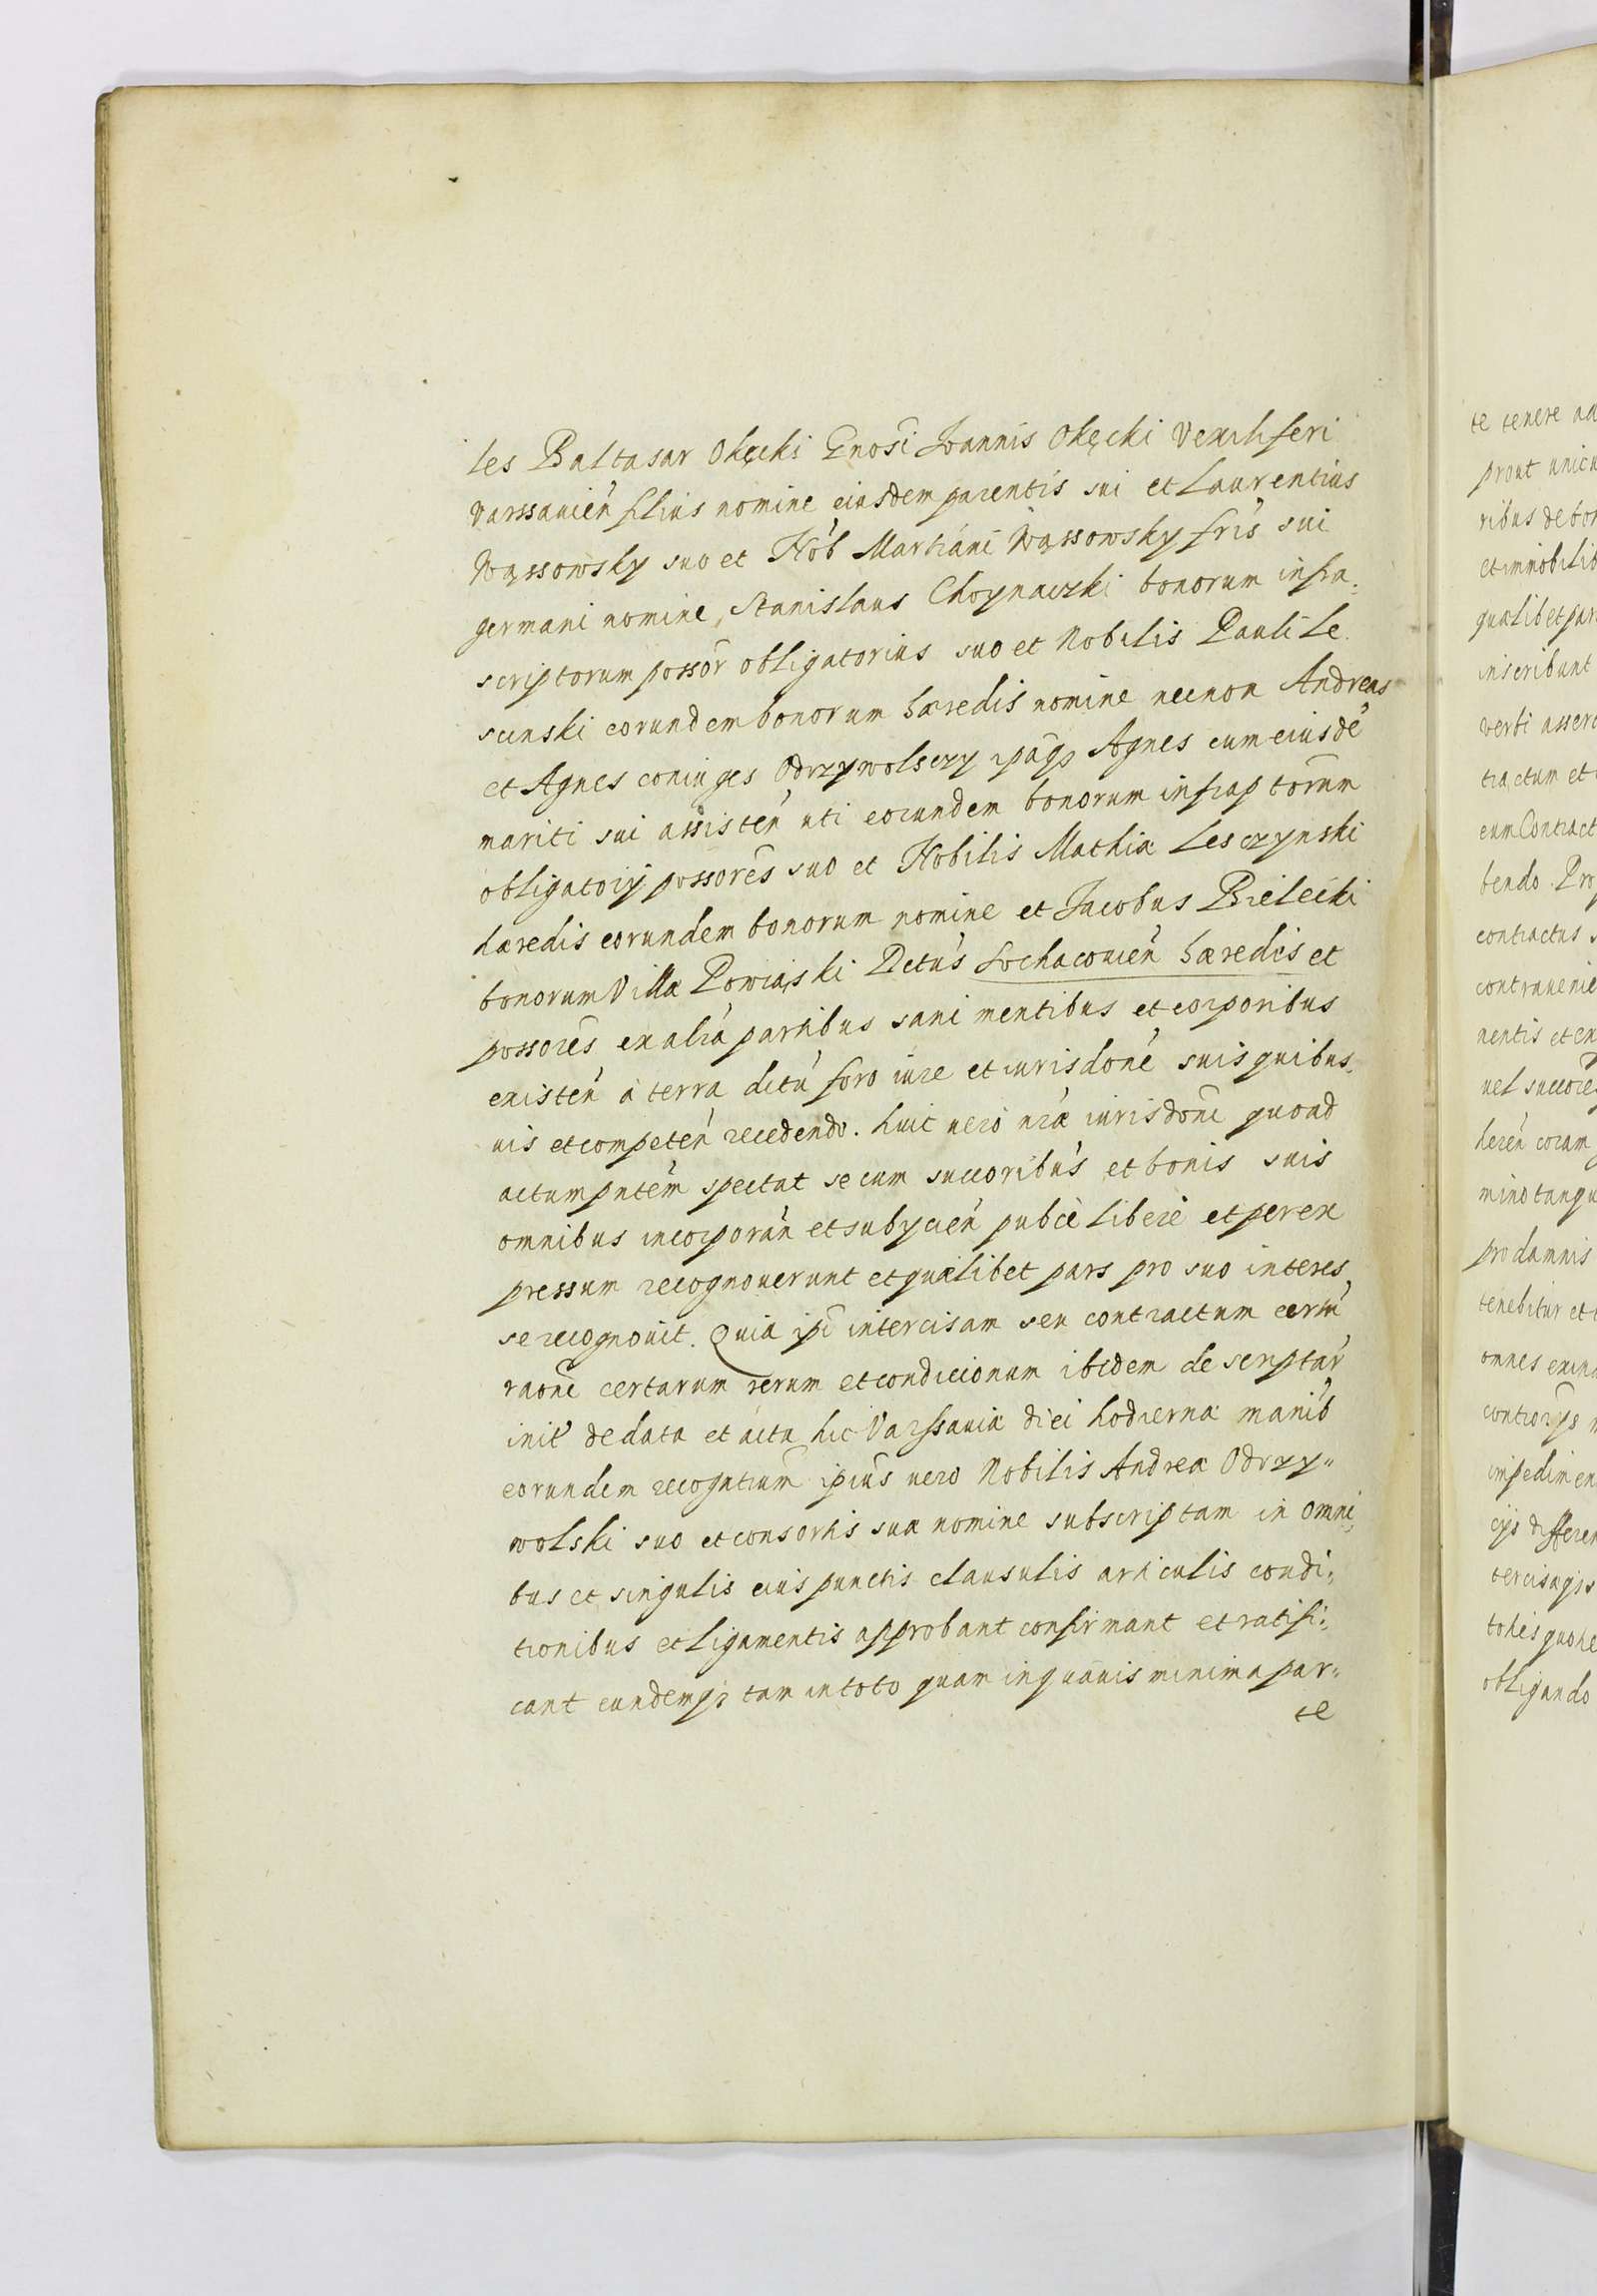 les Baltasar Okęcki Gnosi Joannis Okęcki Vexiliferi
Varssavien filius nomine eiusdem parentis sui et Laurentius
Wąssowsky suo et Nob Martiani Wąssowsky fris sui
germani nomine, Stanislaus Choynaczki bonorum infra:
scriptorum possor obligatorius suo et Nobilis Pauli Le
scinski eorundem bonorum hæredis nomine necnon Andreas
et Agnes coniuges Odrzywolsczy Agnes cum eiusde
mariti sui assisten uti eorundem bonorum infraptorum
obligatorÿ possores suo et Nobilis Mathiæ Lesczynski
hæredis eorundem bonorum nomine et Jacobus Bielecki
bonorum Villæ Powiąski Dctus Sochacouien hæredes et
possores ex altra partibus sani mentibus et corporibus
existen a terra dictu foro iure et iurisdone suis quibus
uis et competen recedendo. huic uero nræ iurisdoni quoad
actum pntem spectat se cum succoribus et bonis suis
omnibus incorporan et subÿcien publce libere et per ex
pressum recognouerunt et quælibet pars pro suo interes
se recognouit. Quia ipi intercisam seu contractum certu
raone certarum rerum et condicionum ibidem descriptar
init de data et acta hic Varssauiæ diei hodiernæ manib
eorundem recogntium ipius uero Nobilis Andreæ Odrzy"
wolski suo et consortis suæ nomine subscriptam in omni
bus et singulis eius punctis clausulis articulis condi:
tionibus et ligamentis approbant confirmant et ratifi:
cant eundemq3 tam in toto quam in quauis minima par"
te
te tenere ad
prout unicu
ribus de bon
et immobilib
quælibet par
inscribunt
verbi asser
tractum et
eum Contract
bendo. Pro
contractus
contrauenie
nentis et ex
uel succores
heren coram
mino tanqu
pro damnis
tenebitur et
omnes
impedimen
differen
toties quotie
obligando